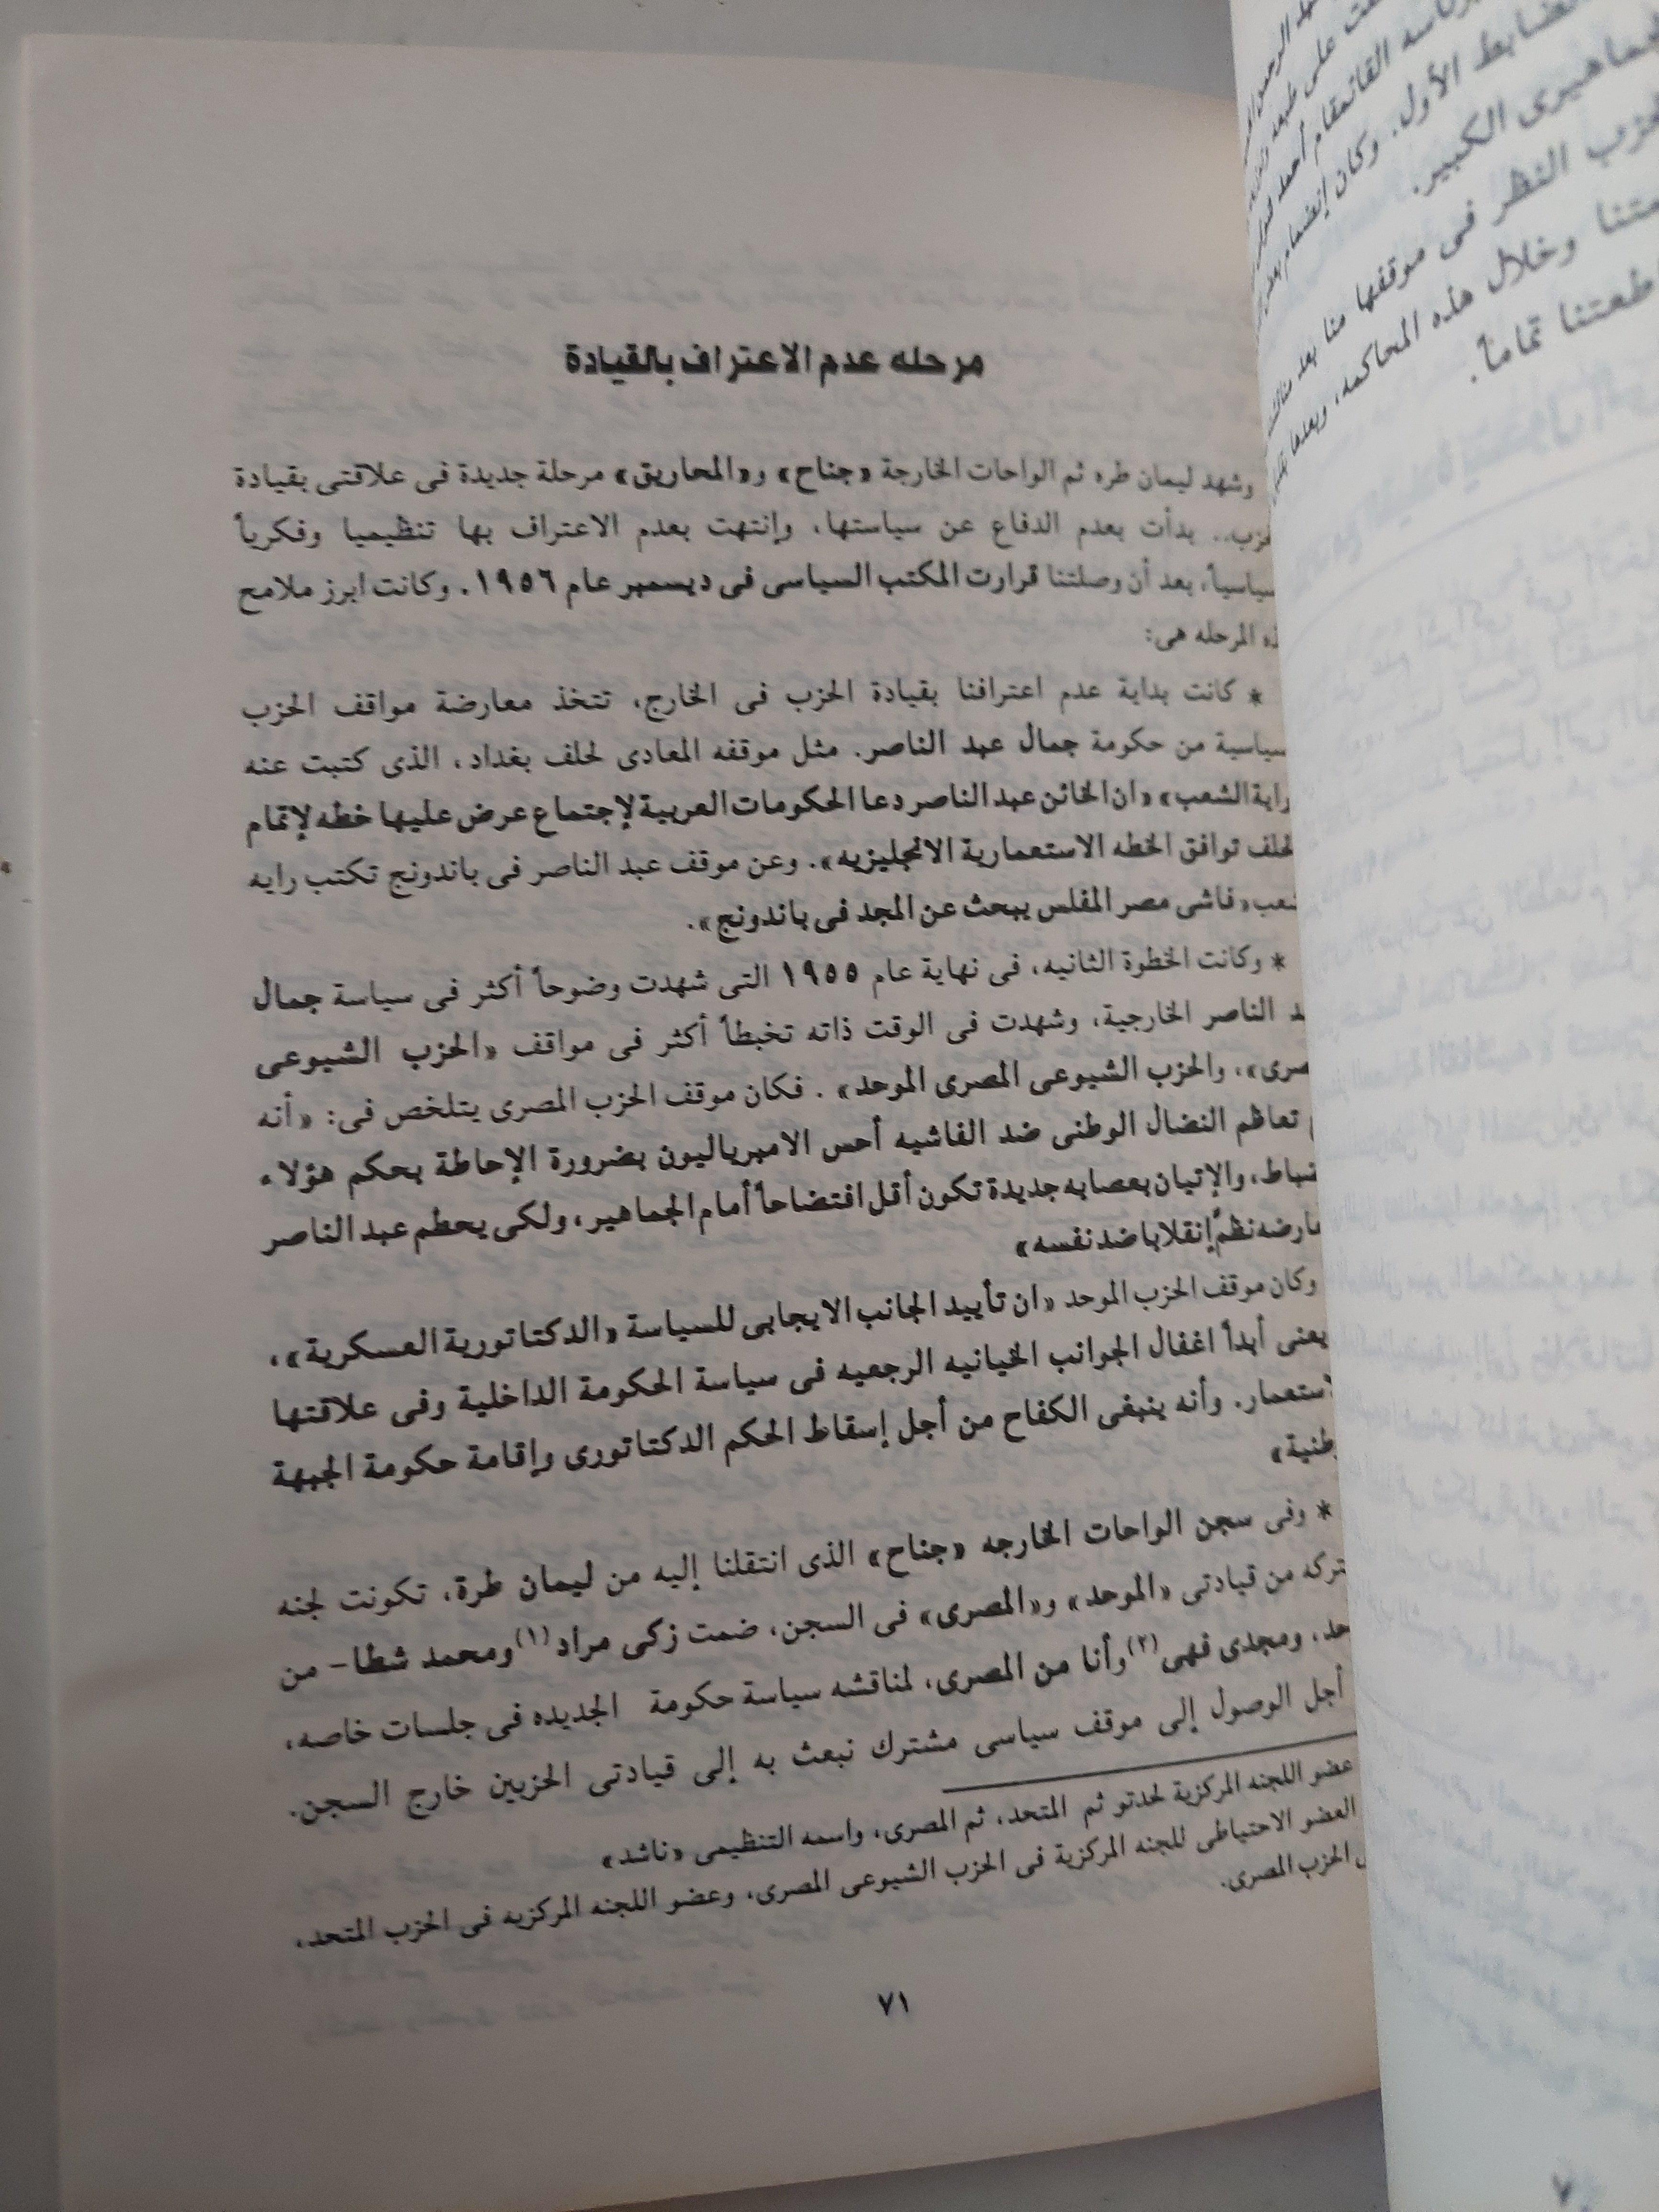 مرحله عدم الاعتراف بالقيادة
وشهد ليمان طره ثم الواحات الخارجة «جناح» و«المحاريق» مرحلة جديدة فى علاقتى بقيادة
بدأت بعدم الدفاع عن سياستها، وإنتهت بعدم الاعتراف بها تنظيميا وفكرياً
بعد أن وصلتنا قرارت المكتب السياسى فى ديسمبر عام ١٩٥٦. وكانت ابرز ملامح
المرحله هى:
* كانت بداية عدم اعترافنا بقيادة الحزب فى الخارج، تتخذ معارضة مواقف الحزب
من حكومة جمال عبد الناصر. مثل موقفه المعادى لحلف بغداد، الذى كتبت عنه
راية الشعب» «ان الخائن عبد الناصر دعا الحكومات العربية لإجتماع عرض عليها خطه لإتمام
توافق الخطه الاستعمارية الانجليزيه». وعن موقف عبد الناصر فى باندونج تكتب رايه
«فاشى مصر المفلس يبحث عن المجد فى باندونج».
* وكانت الخطوة الثانيه، فى نهاية عام ١٩٥٥ التى شهدت وضوحاً أكثر فى سياسة جمال
الناصر الخارجية، وشهدت فى الوقت ذاته تخبطاً أكثر فى مواقف «الحزب الشيوعى
والحزب الشيوعى المصرى الموحد» . فكان موقف الحزب المصرى يتلخص فى: «أنه
تعاظم النضال الوطنى ضد الفاشيه أحس الامبرياليون بضرورة الإحاطة بحكم هؤلاء
والإتيان بعصابه جديدة تكون أقل افتضاحاً أمام الجماهير، ولكى يحطم عبد الناصر
نظم إنقلابا ضد نفسه»
وكان موقف الحزب الموحد «ان تأييد الجانب الايجابى للسياسة «الدكتاتورية العسكرية»،
يعنى أبداً اغفال الجوانب الخيانيه الرجعيه فى سياسة الحكومة الداخلية وفى علاقتها
وأنه ينبغى الكفاح من أجل إسقاط الحكم الدكتاتورى وإقامة حكومة الجبهة
* وفى سجن الواحات الخارجه «جناح» الذى انتقلنا إليه من ليمان طرة، تكونت لجنه
من قيادتى «الموحد» و«المصرى» فى السجن، ضمت زكى مراد(١) ومحمد شطا- من
ومجدى فهى(٢) وأنا من المصرى، لمناقشه سياسة حكومة الجديده فى جلسات خاصه،
أجل الوصول إلى موقف سياسى مشترك نبعث به إلى قيادتى الحزبين خارج السجن.
عضو اللجنه المركزية لحدتو ثم المتحد، ثم المصرى، واسمه التنظيمى «ناشد»
العضو الاحتياطى للجنه المركزية فى الحزب الشيوعى المصرى، وعضو اللجنه المركزيه فى الحزب المتحد،
الحزب المصرى.
٧١
الأول. وكان إنضمام
الكبير.
النظر فى موقفها منا بعد
وخلال هذه المحاكمه، وبعدها
تماماً.